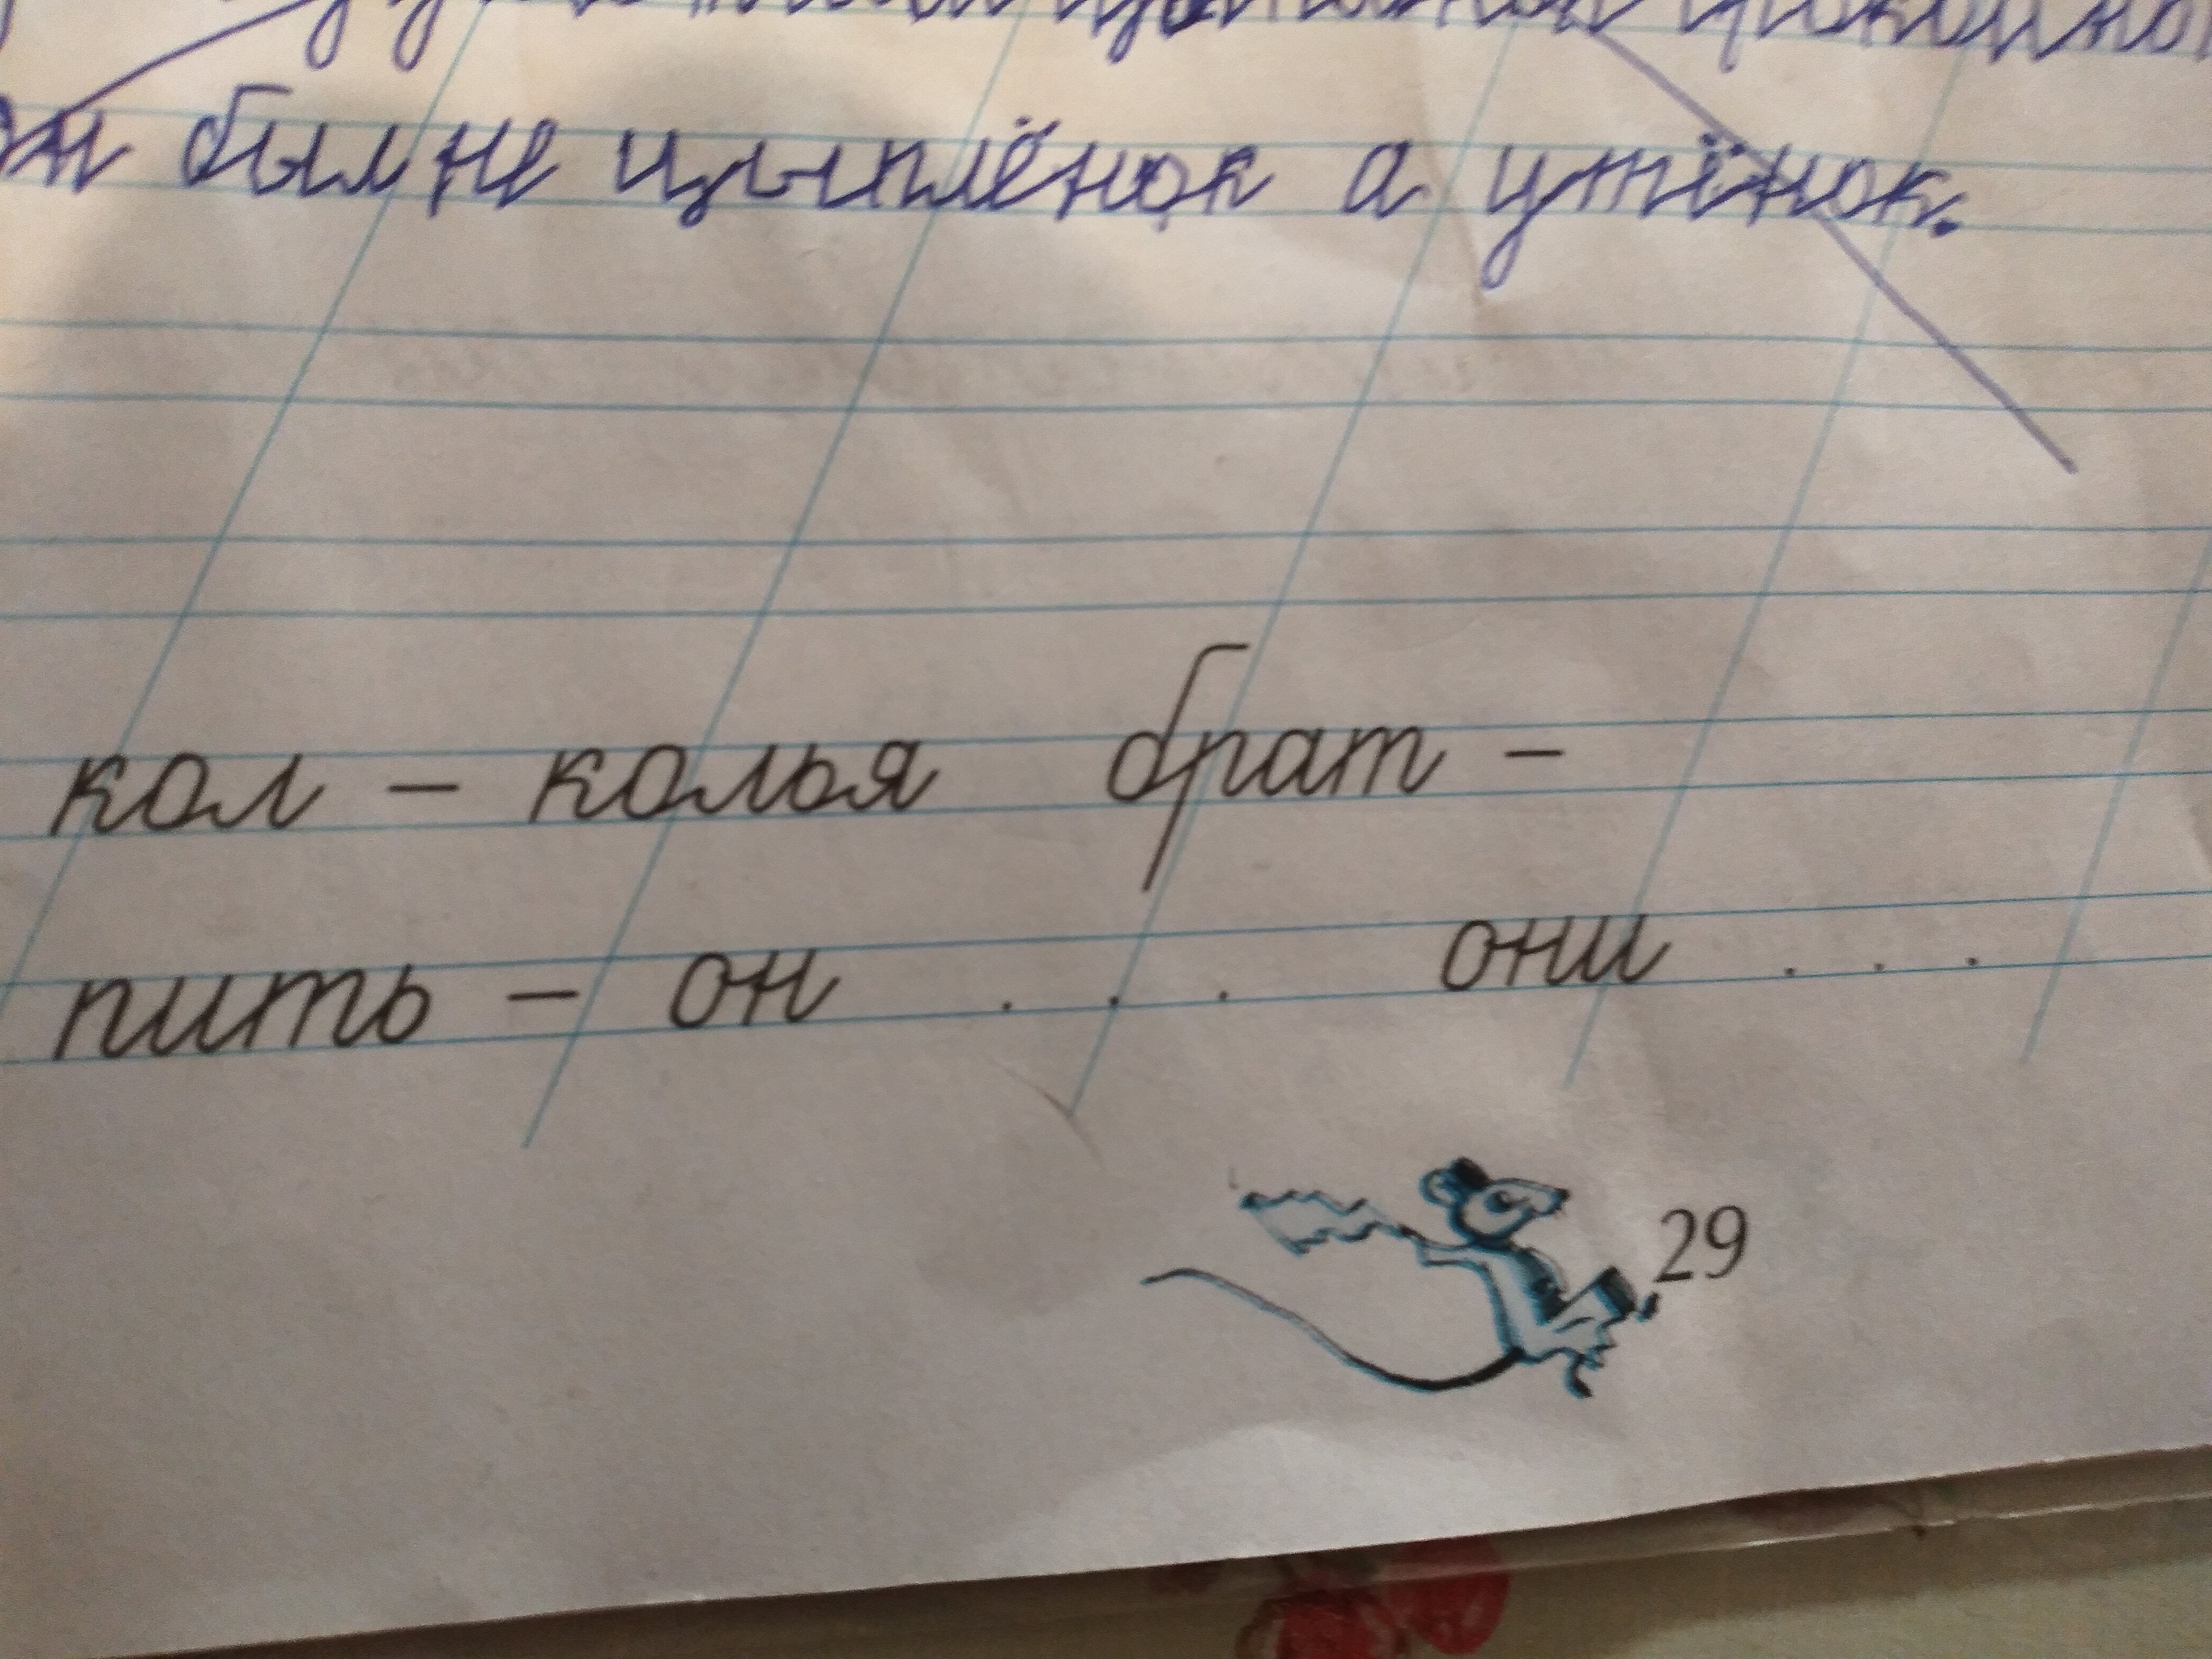 был не цыплёнок а утёнок.
кол – колья брат –
пить – он . . . они . . .
29